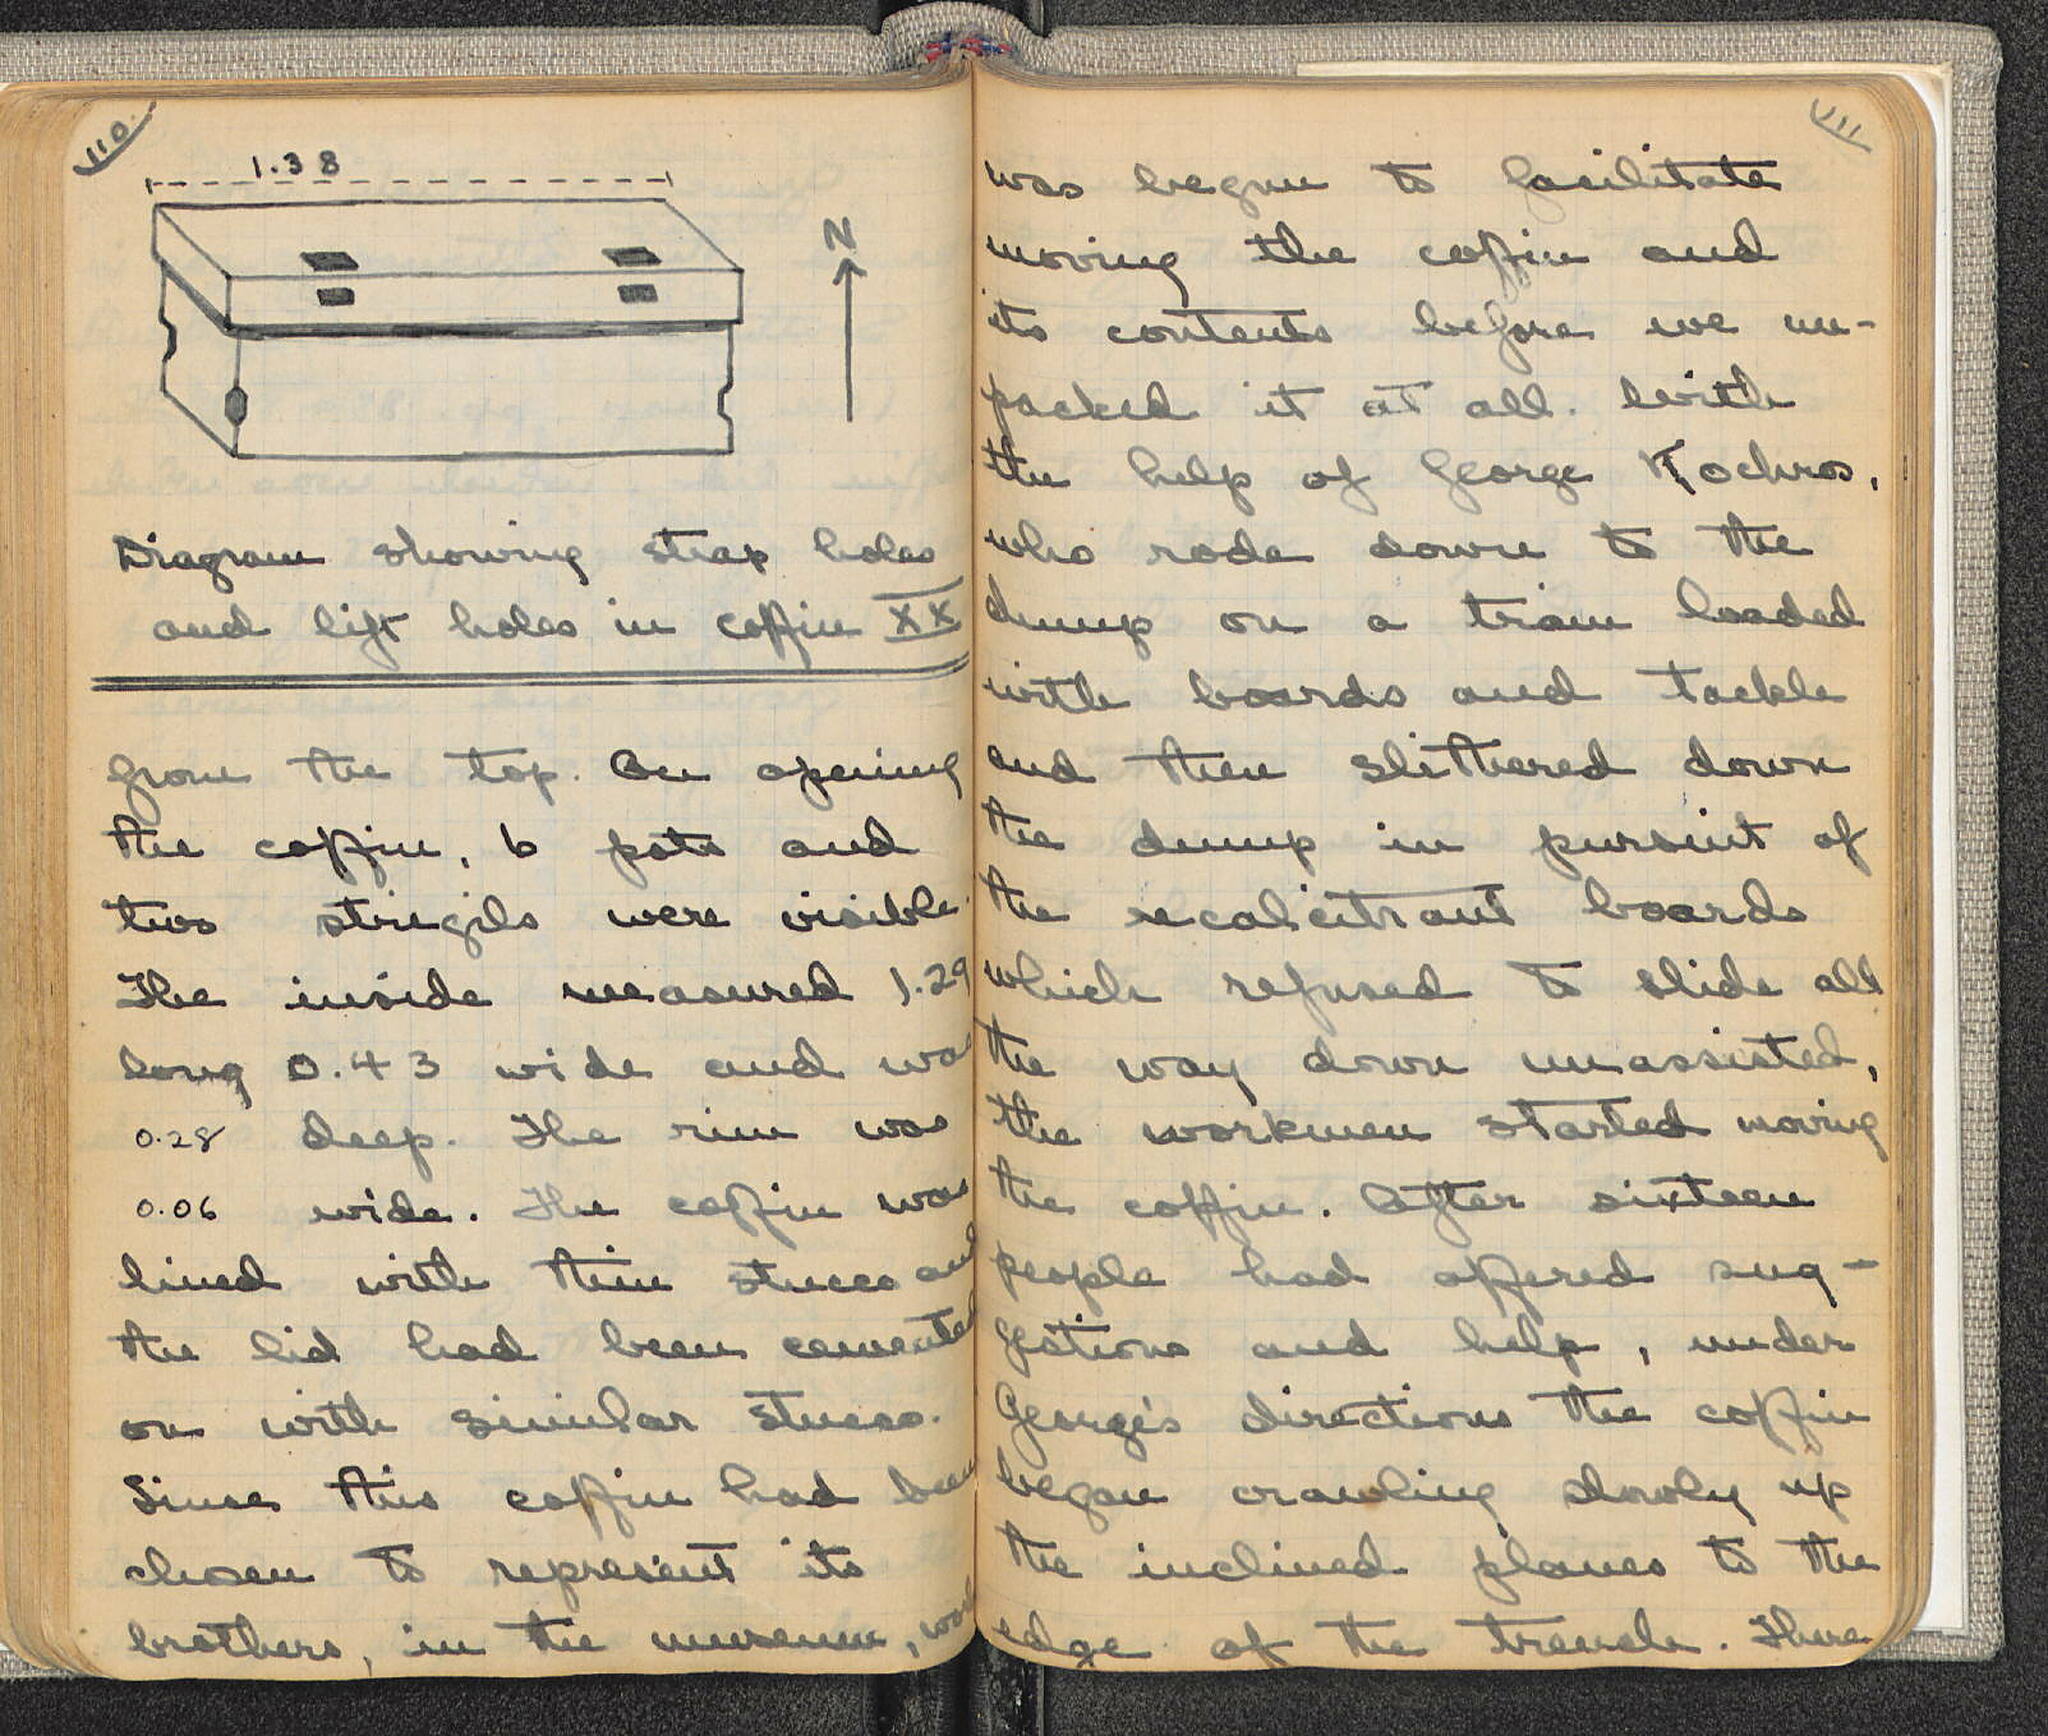 110.
1.38
N
Diagram showing strap holes
and lift holes in coffin XX
from the top. On opening
the coffin, 6 pots and
two strigils were visible.
The inside measured 1.29
long 0.43 wide and was
0.28 deep. The rim was
0.06 wide. The coffin was
lined with thin stucco and
the lid had been cemented
on with similar stucco.
Since this coffin had been
chosen to represent its
brothers, in the museum, work
111
was begun to facilitate
moving the coffin and
its contents before we un-
packed it at all. With
the help of George Kochros,
who rode down to the
dump on a train loaded
with boards and tackle
and then slithered down
the dump in pursuit of
the recalcitrant boards
which refused to slide all
the way down unassisted,
the workmen started moving
the coffin. After sixteen
people had offered sug-
gestions and help, under
George's directions the coffin
began crawling slowly up
the inclined planes to the
edge of the trench. There